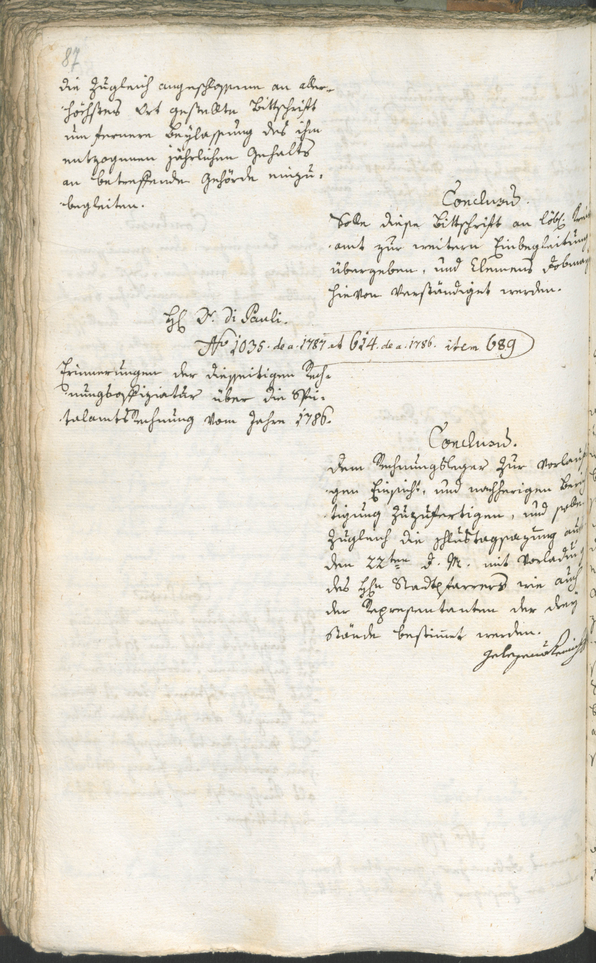 87
die zugleich angeschlossene an aller-
höchstes Ort gestellte Bittschrift
um fernere Beylassung des ihm
entzogenen jährlichen Gehalts
an betreffende Gehörde einzu-
begleiten.
Conclusum.
Solle diese Bittschrift an löbl. Kreis
amt zur weitern Einbegleitung
übergeben, und Clemens
hievon verständiget werden.
H. Dr. Di Pauli.
No 1035. de a. 1787 et 614. de a. 1786. item 689
Erinnerungen der diesseitigen Rech-
nungsoffiziatur über die Spi-
talamtsRechnung vom Jahre 1786.
Conclusum.
Dem Rechnungsleger zur vorläufi
gen Einsicht, und nachherigen Berich
tigung zuzufertigen, und solle
zugleich die schlüstagsazung auf
den 22ten d. M. mit Vorladung
des Hhn Stadtpfarrers wie auch
der Representanten der drey
Stände bestimmt werden.